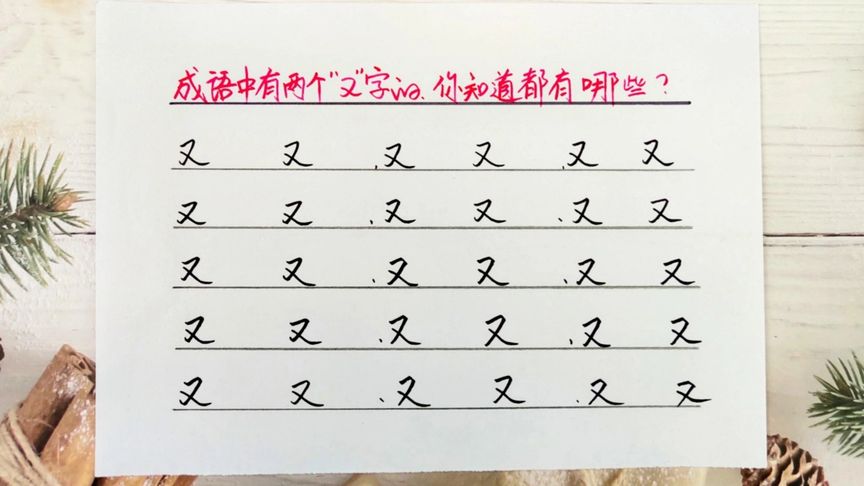 成语中有两个"又"字的、你知道都有哪些？
又 又 、又 又 、又 又
又 又 、又 又 、又 又
又 又 、又 又 、又 又
又 又 、又 又 、又 又
又 又 、又 又 、又 又